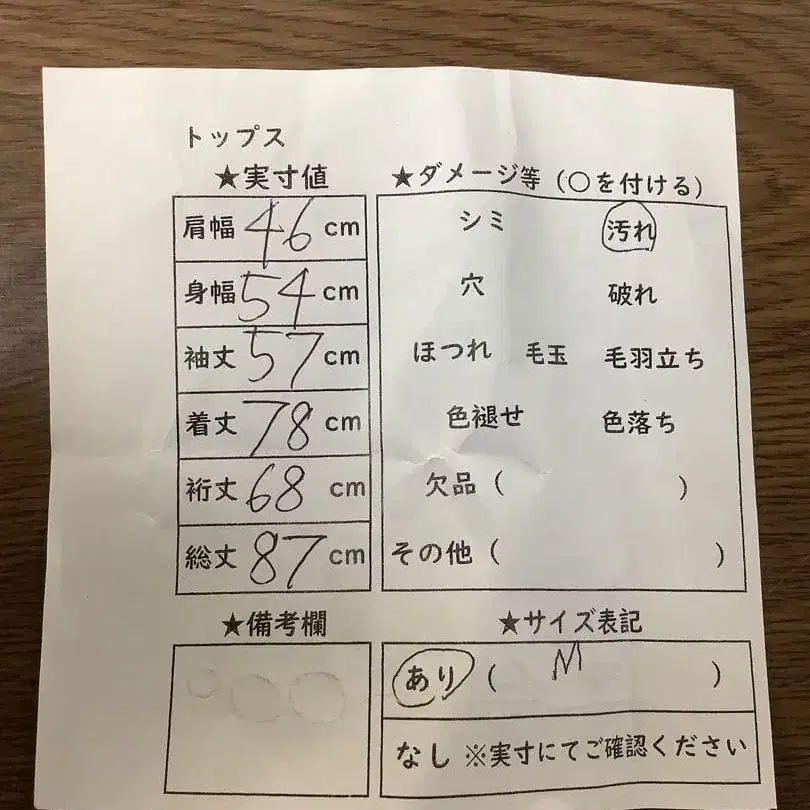 トップス
★実寸値
肩幅 46 cm
身幅 54 cm
袖丈 57 cm
着丈 78 cm
裄丈 68 cm
総丈 87 cm
★ダメージ等（○を付ける）
シミ 汚れ
穴 破れ
ほつれ 毛玉 毛羽立ち
色褪せ 色落ち
欠品（ ）
その他（ ）
★備考欄
★サイズ表記
あり（ M ）
なし ※実寸にてご確認ください